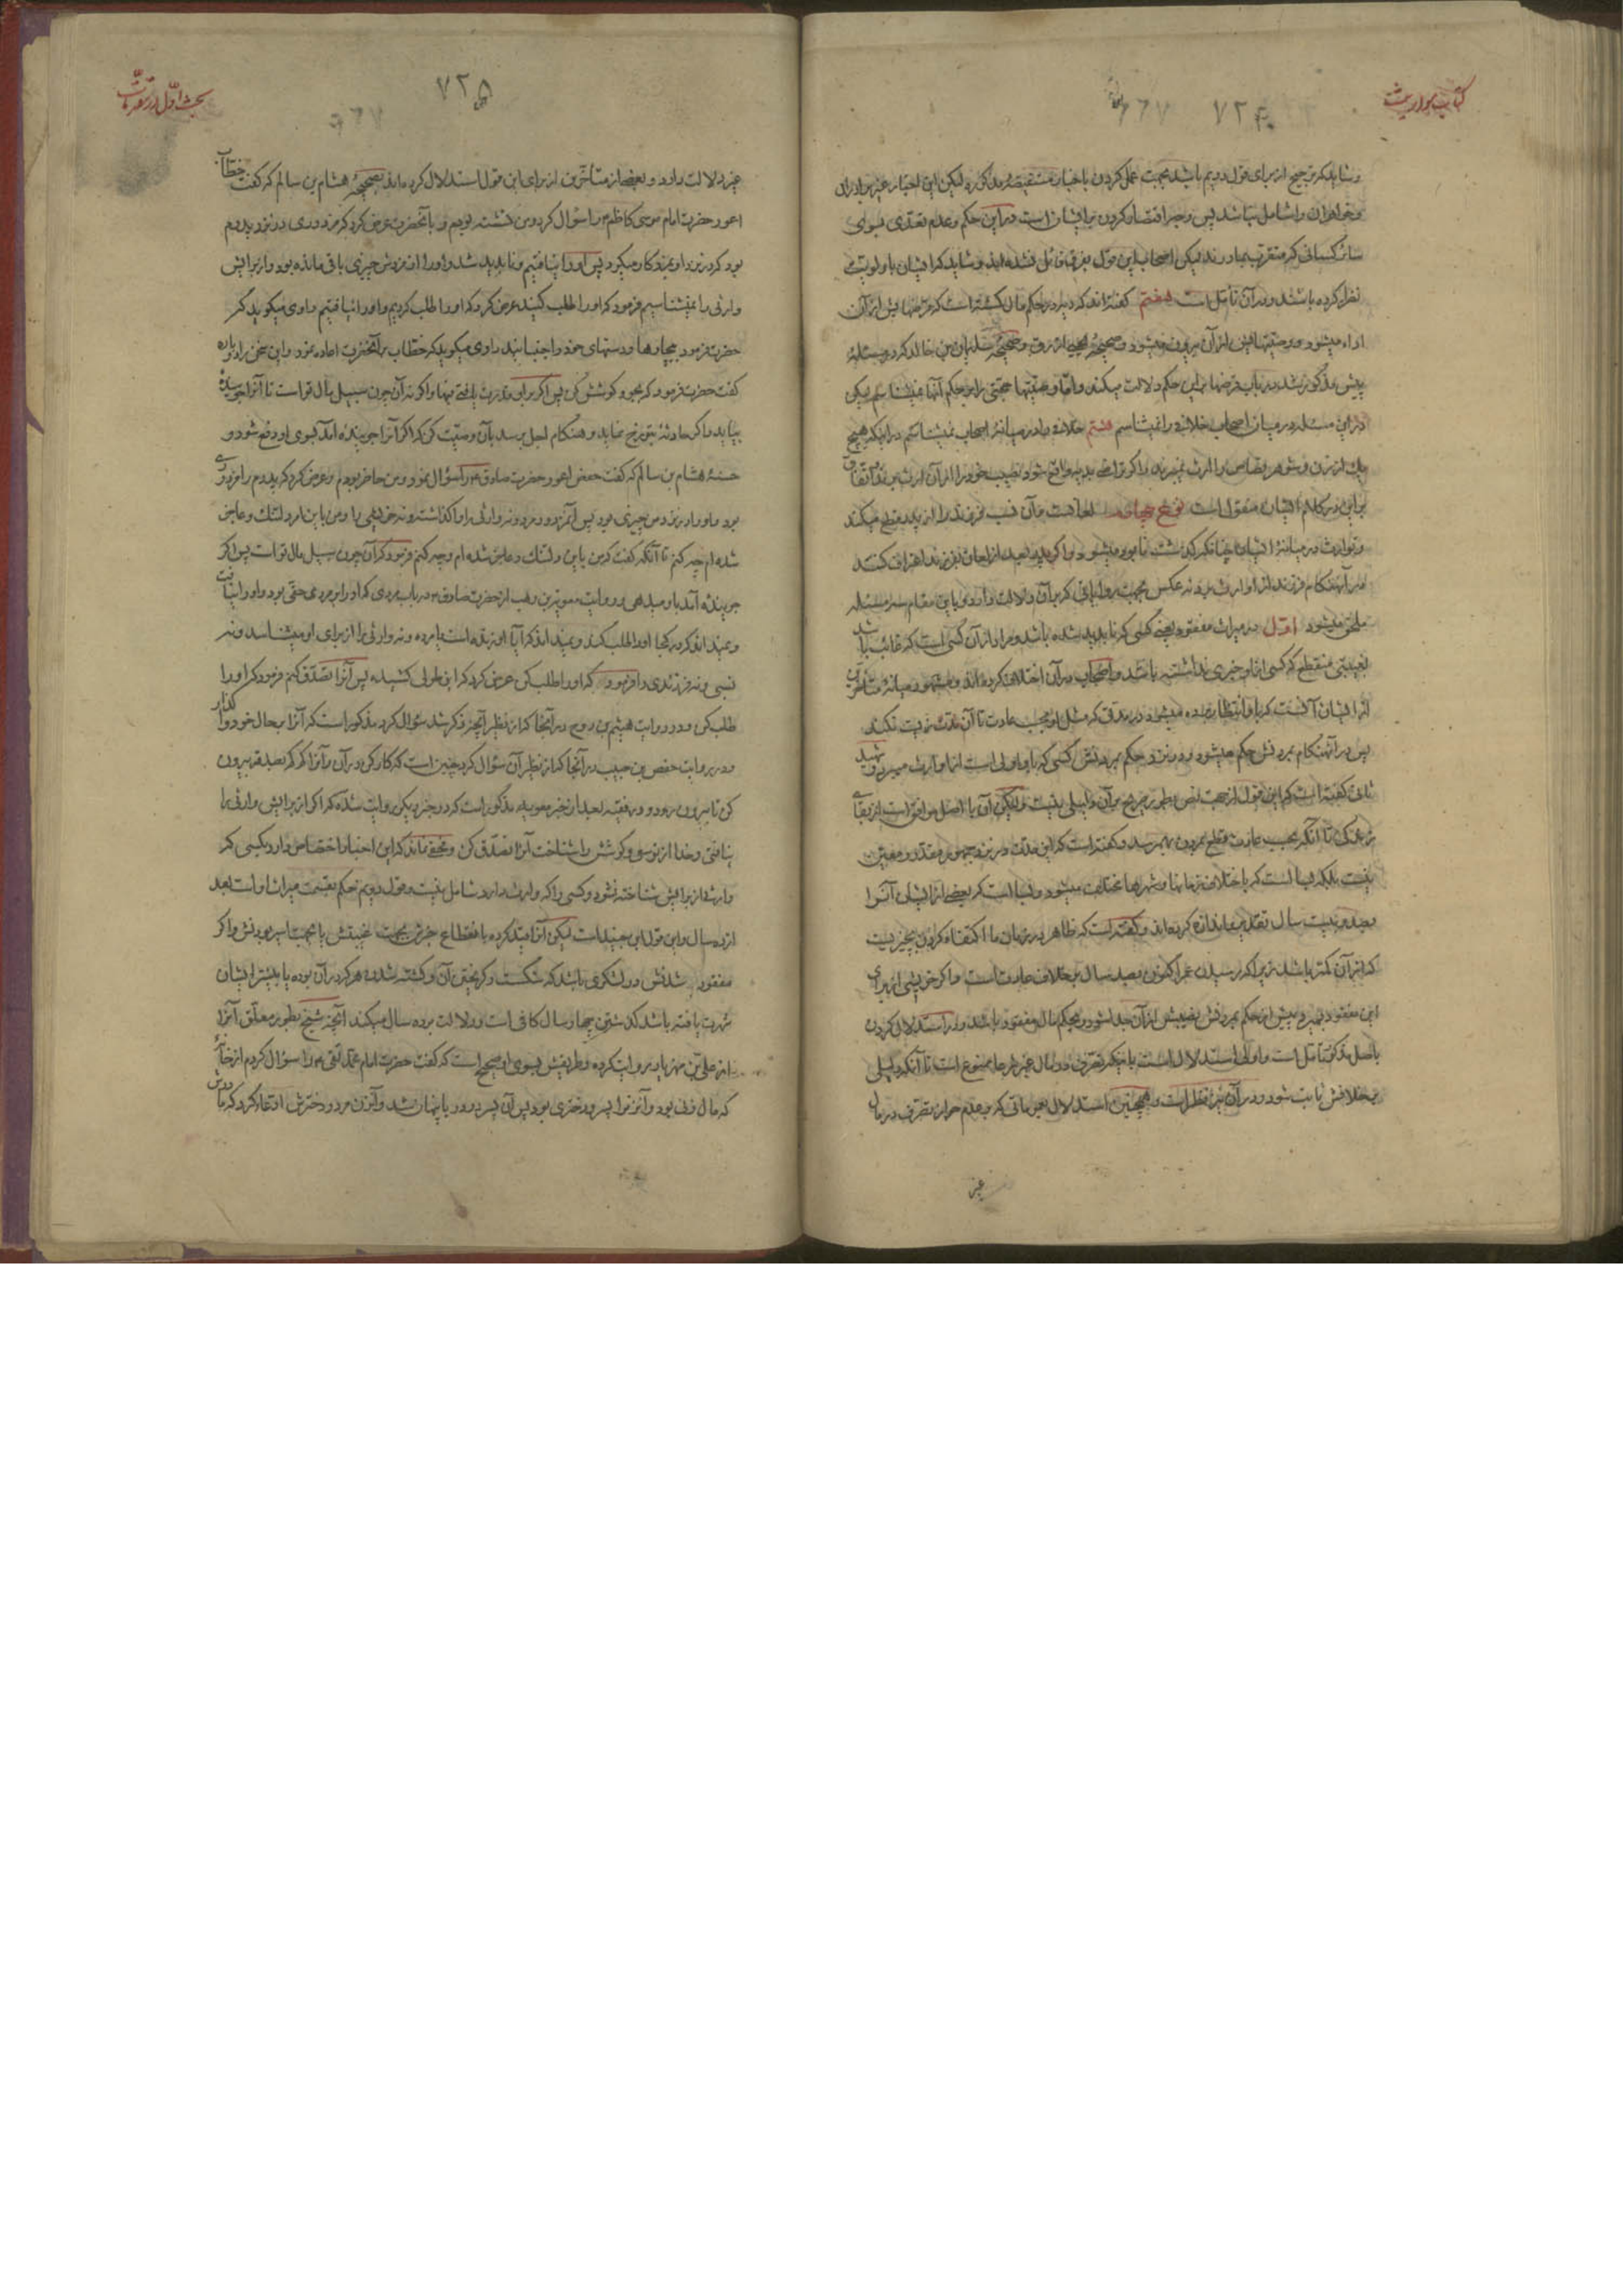 کتاب مواریث
۷۲۴
وشاید که ترجیح از برای قول دویم باشد بجهت عمل کردن باخبار مستفیضهٔ مذکوره لیکن این اخبار غیر برادران
وخواهران را شامل نباشد پس وجه اقتصار کردن بر ایشان است در این حکم وعدم تعدّی بسوی
سائر کسانی که متقرّب بمادرند لیکن اصحاب این قول بفرق قائل نشده‌اند وشاید که ایشان باولویت
نظر کرده باشند ودر آن تأمّل است هفتم گفته‌اند که دیه در حکم مال کشته است که قرضها یش از آن
اداء میشود ووصیّتهایش از آن بیرون میشود وصحیحهٔ یحیی ازرق وصحیحهٔ سلیمان بن خالد که در مسئلهٔ
پیش مذکور شد در باب قرضها بر این حکم دلالت میکند وامّا وصیّتها حجّتی را بر حکم آنها نمیشناسم لیکن
در این مسئله در میان اصحاب خلافی را نمیشناسم هشتم خلافی را در میانهٔ اصحاب نمیشناسم در اینکه هیچ
یک از زن وشوهر قصاص را ارث نمیبرند واگر تراضی بدیه واقع شود نصیب خود را از آن ارث میبرند واتّفاق
بر این در کلام ایشان منقول است نوع چهارم لعانست وآن نسب فرزند را از پدر قطع میکند
وتوارث در میانهٔ ایشان چنانکه گذشت نابود میشود واگر پدر بعد از لعان بفرزند اعتراف کند
در آنهنگام فرزند از او ارث میبرد نه عکس بجهت روایاتی که بر آن دلالت دارد وباین مقام سه مسئله
ملحق میشود اوّل در میراث مفقود یعنی کسی که ناپدید شده باشد ومراد از آن کسی است که غائب باشد
بغیبتی منقطع که کسی از او خبری نداشته باشد واصحاب در آن اختلاف کرده‌اند ومشهور میانهٔ متأخّرین
از ایشان آنست که باو انتظار برده میشود در مدّتی که مثل او بحسب عادت تا آن مدّت زیست نکند
پس در آنهنگام بمردنش حکم میشود ودر نزد حکم بمردنش کسی که باو اولی است از او ارث میبرد وشهید
ثانی گفته است که این قول از جهت نص بطور صریح بر آن دلیلی نیست ولیکن آن با اصل موافق است از بقای
زندگی تا آنکه بحسب عادت قطع بمردن بهم رسد وگفته است که این مدّت در نزد جمهور مقدّر ومعیّن
نیست بلکه بسا است که باختلاف زمانها وشهرها مختلف میشود وبسا است که بعضی از ایشان آنرا
بصد وبیست سال تقدیر واندازه کرده‌اند وگفته است که ظاهر در زمان ما اکتفاء کردن بچیزیست
که از آن کمتر باشد زیرا که رسیدن عمر اکنون بصد سال بر خلاف عادت است واگر خویشی از برای
این مفقود بمیرد پیش از حکم بمردنش نصیبش از آن جدا شود وبحکم مال مفقود باشد ودر استدلال کردن
باصل مذکور تأمّل است واولی استدلال است باینکه تصرّف در مال غیر هر جا ممنوع است تا آنکه دلیلی
بر خلافش ثابت شود ودر آن نیز نظر است وهمچنین استدلال بعموماتی که بر عدم جواز تصرّف در مال
غیر
بحث اوّل در مقدّمات
۷۲۵
غیر دلالت دارد وبعضی از متأخّرین از برای این قول استدلال کرده‌اند بصحیحهٔ هشام بن سالم که گفت خطّاب
اعور حضرت امام موسی کاظم را سؤال کرد ومن نشسته بودم وبآنحضرت عرض کرد که مزدوری در نزد پدرم
بود که در نزد او بمزد کار میکرد پس او را نیافتیم وناپدید شد واو را از مزدش چیزی باقی مانده بود واز برایش
وارثی را نمیشناسیم فرمود که او را طلب کنید عرض کرد که او را طلب کردیم واو را نیافتیم راوی میکوید که
حضرت فرمود بیچارها ودستهای خود را جنبانید راوی میکوید که خطّاب بر آنحضرت اعاده نمود واین سخن را دوباره
گفت حضرت فرمود که بجو وکوشش کن پس اگر بر او قدرت یافتی فبها واگر نه آن چون سبیل مال تو است تا آنرا جوینده
بیاید واگر حادثهٔ بتو رخ نماید وهنگام اجل برسد بآن وصیّت کن که اگر آنرا جوینده آمد بسوی او دفع شود و
حسنهٔ هشام بن سالم که گفت حفص اعور حضرت صادق را سؤال نمود ومن حاضر بودم وعرض کرد که پدرم را مزدوری
بود واو را در نزد من چیزی بود پس آنمزدور مرد ونه وارثی را واگذاشته ونه خویشی را ومن باین امر دلتنگ وعاجز
شده‌ام چه کنم تا آنکه گفت که من باین دلتنگ وعاجز شده‌ام وچه کنم فرمود که آن چون سبیل مال تو است پس اگر
جوینده آمد باو میدهی وروایت معویة بن وهب از حضرت صادق در باب مردی که او را بر مردی حقّی بود واو را نیافت
ونمیداند که در کجا او را طلب کند ونمیداند که آیا او زنده است یا مرده ونه وارثی را از برای او میشناسد ونه
نسبی ونه فرزندی را فرمود که او را طلب کن عرض کرد که این طولی کشیده پس آنرا تصدّق کنم فرمود که او را
طلب کن ودر روایت هیثم بن روح در آنجا که از نظیر آنچه ذکر شد سؤال کرد مذکور است که آنرا بحال خود وا گذار
ودر روایت حفص بن حبیب در آنجا که از نظیر آن سؤال کرد چنین است که کار کن در آن وآنرا کم کم بصدقه بیرون
کن تا بیرون رود ودر فقیه بعد از خبر معویه مذکور است که در خبر دیگر روایت شده که اگر از برایش وارثی را
نیافتی وخدا از تو سعی وکوشش را شناخت آنرا تصدّق کن ومخفی نماند که این اخبار اختصاص دارد بکسی که
وارثی از برایش شناخته نشود وکسی را که وارث دارد شامل نیست وقول دویم حکم بقسمت میراث او است بعد
از ده سال واین قول ابن جنید است لیکن آنرا مقیّد کرده بانقطاع خبرش بجهت غیبتش یا بجهت اسیر بودنش واگر
مفقود شدنش در لشکری باشد که شکست وگریختن آن وکشته شدن هر که در آن بوده یا بیشتر ایشان
شهرت یافته باشد گذشتن چهار سال کافی است ودلالت بر ده سال میکند آنچه شیخ بطور معلّق آنرا
از علیّ بن مهزیار روایت کرده وطریقش بسوی او صحیح است که گفت حضرت امام محمّد تقی را سؤال کردم از خانهٔ
که مال زنی بود وآنزنرا پسر ودختری بود پس آن پسر در دریا پنهان شد وآنزن مرد ودخترش ادّعاء کرد که مادرش